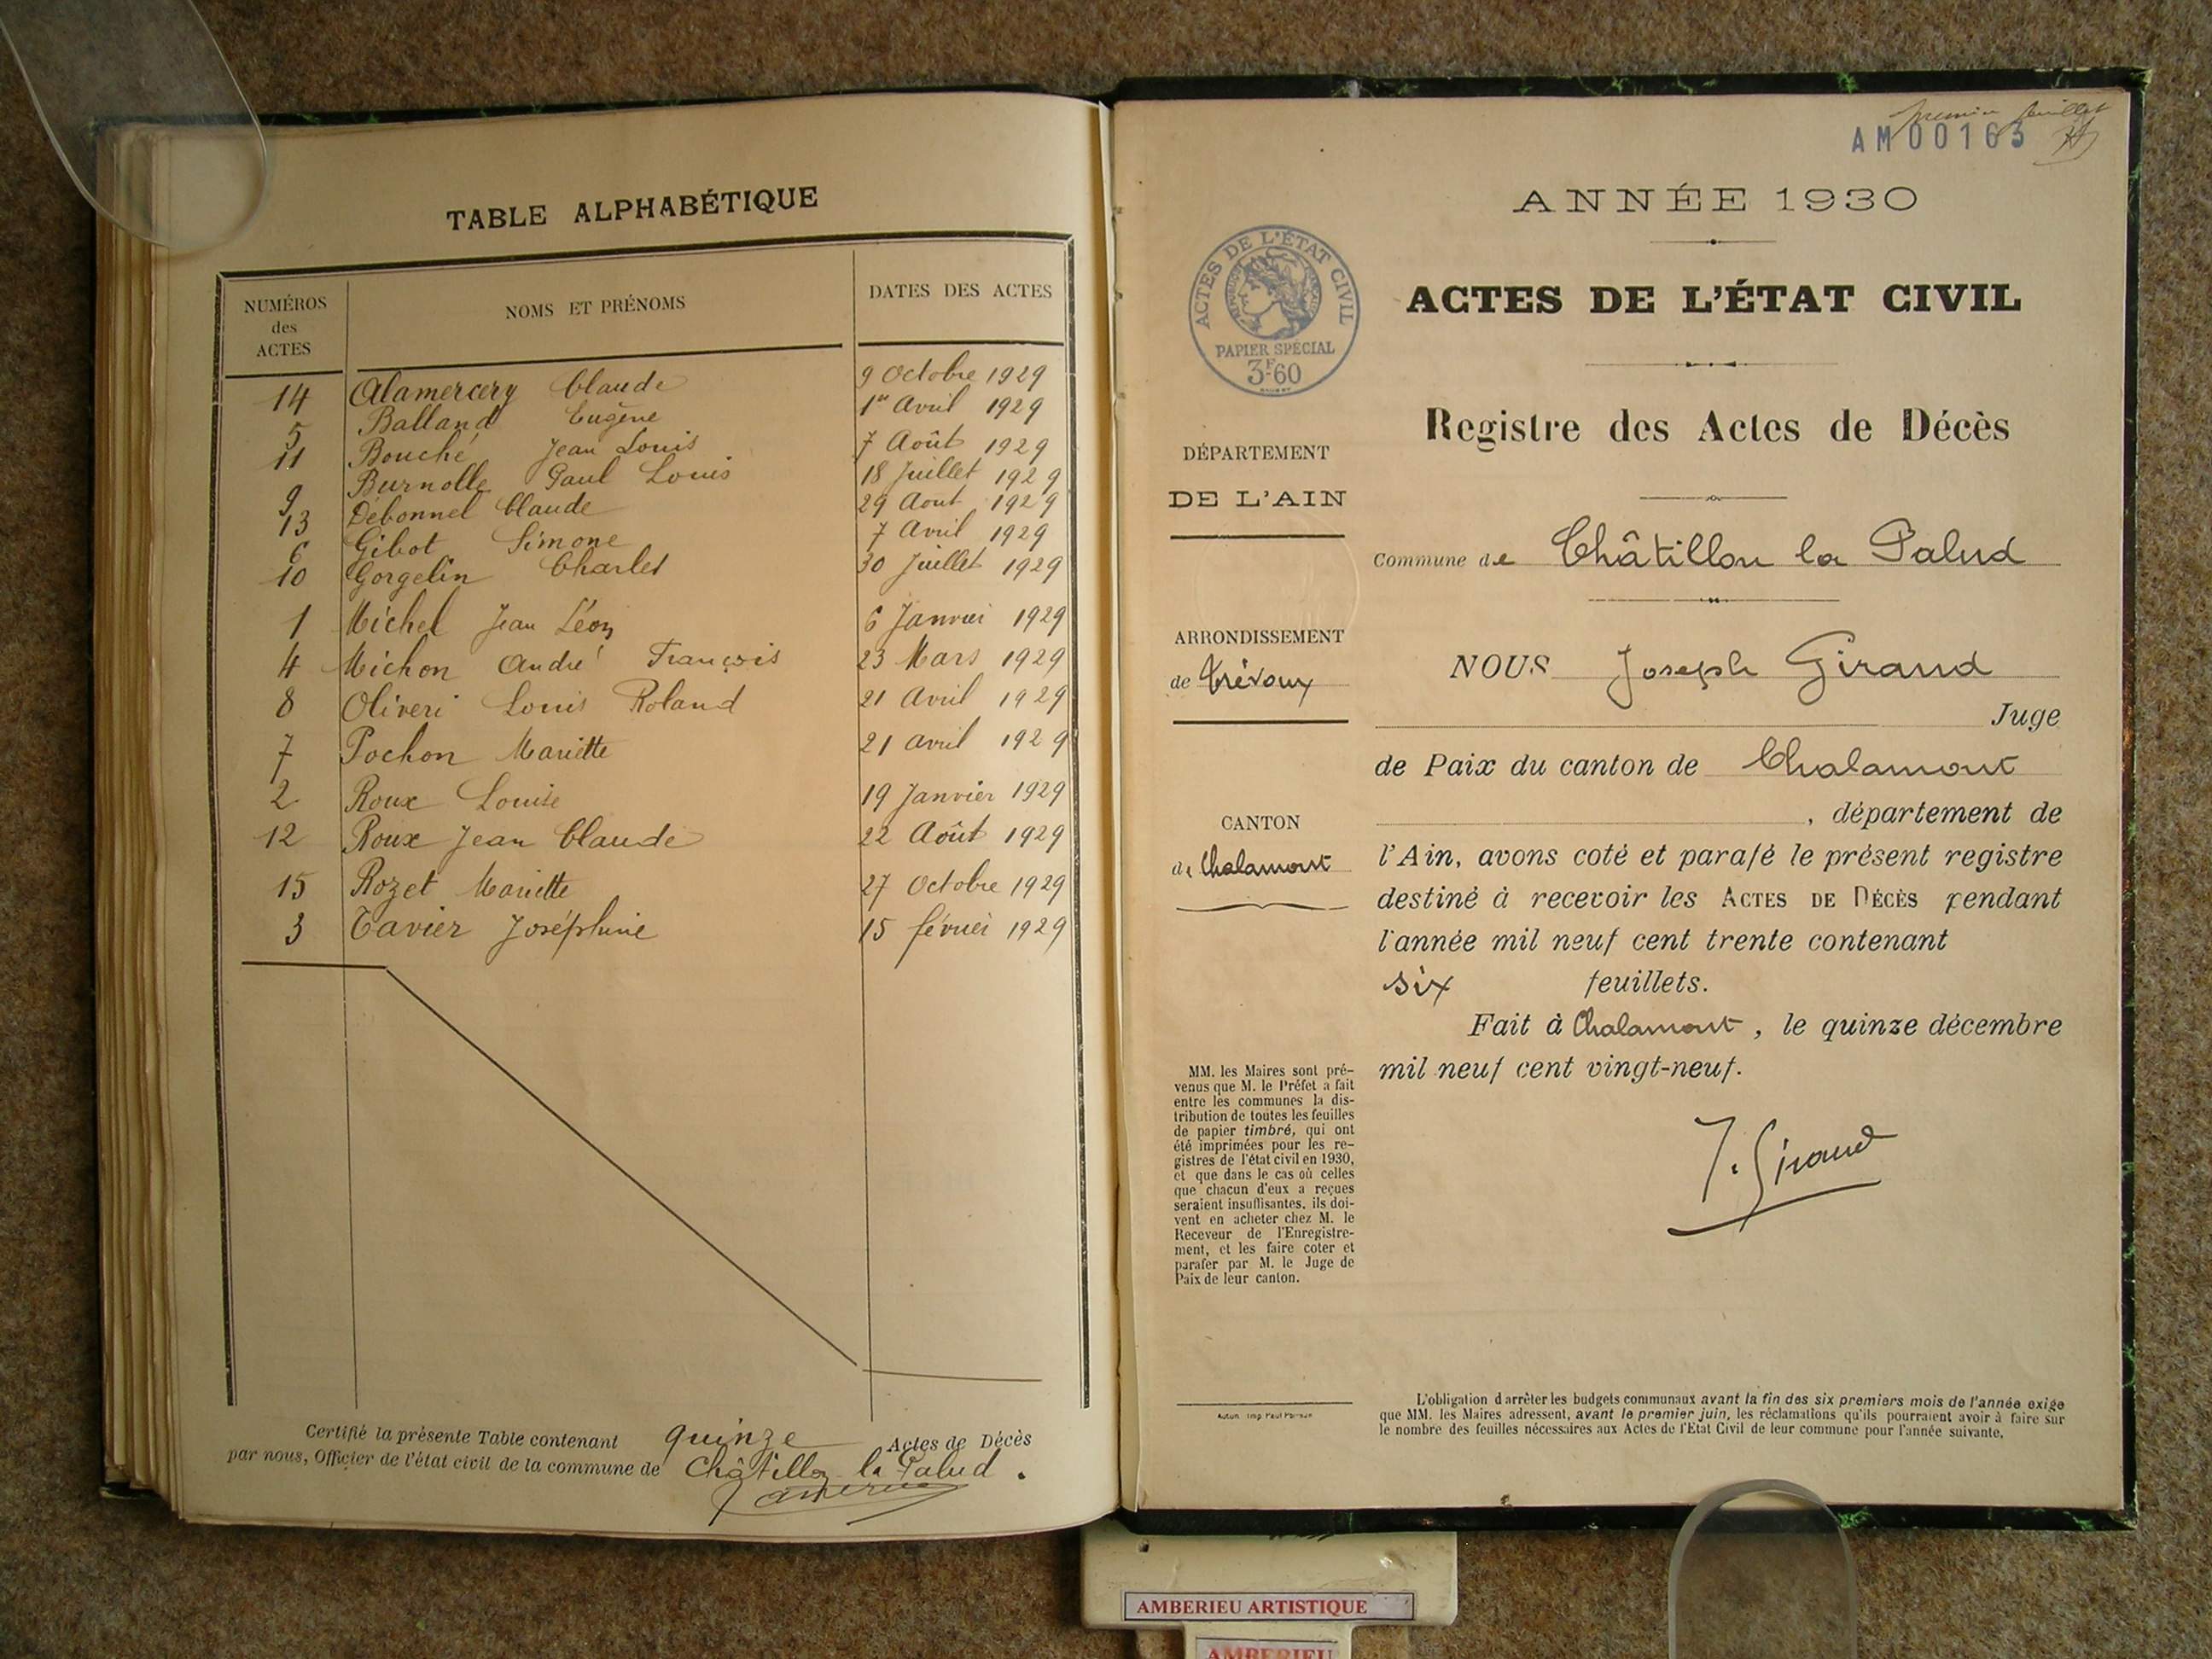 TABLE ALPHABÉTIQUE
NUMÉROS des ACTES NOMS ET PRÉNOMS DATES DES ACTES
14 Alamercery Claude 9 Octobre 1929
5 Balland Eugène 1er Avril 1929
11 Bouché Jean Louis 7 Août 1929
9 Burnolle Paul Louis 18 Juillet 1929
13 Débonnel Claude 29 Aout 1929
6 Gibot Simone 7 Avril 1929
10 Gorgelin Charles 30 Juillet 1929
1 Michel Jean Léon 6 Janvier 1929
4 Michon André François 23 Mars 1929
8 Oliveri Louis Roland 21 Avril 1929
7 Pochon Mariette 21 Avril 1929
2 Roux Louise 19 Janvier 1929
12 Roux Jean Claude 22 Août 1929
15 Rozet Mariette 27 Octobre 1929
3 Tavier Joséphine 15 février 1929
Certifié la présente Table contenant quinze Actes de Décès
par nous, Officier de l'état civil de la commune de Châtillon la Palud.
premier feuillet
AM00163
ANNÉE 1930
ACTES DE L'ÉTAT CIVIL
PAPIER SPÉCIAL
3F60
ACTES DE L'ÉTAT CIVIL
Registre des Actes de Décès
DÉPARTEMENT
DE L'AIN
Commune de Châtillon la Palud
ARRONDISSEMENT
de Trévoux
NOUS Joseph Giraud
Juge
de Paix du canton de Chalamont
, département de
CANTON
de Chalamont
l'Ain, avons coté et parafé le présent registre
destiné à recevoir les ACTES DE DÉCÈS pendant
l'année mil neuf cent trente contenant
six feuillets.
Fait à Chalamont, le quinze décembre
mil neuf cent vingt-neuf.
J. Giraud
MM. les Maires sont pré-
venus que M. le Préfet a fait
entre les communes la dis-
tribution de toutes les feuilles
de papier timbré, qui ont
été imprimées pour les re-
gistres de l'état civil en 1930,
et que dans le cas où celles
que chacun d'eux a reçues
seraient insuffisantes, ils doi-
vent en acheter chez M. le
Receveur de l'Enregistre-
ment, et les faire coter et
parafer par M. le Juge de
Paix de leur canton.
Autun Imp. Paul
L'obligation d'arrêter les budgets communaux avant la fin des six premiers mois de l'année exige
que MM. les Maires adressent, avant le premier juin, les réclamations qu'ils pourraient avoir à faire sur
le nombre des feuilles nécessaires aux Actes de l'Etat Civil de leur commune pour l'année suivante.
AMBERIEU ARTISTIQUE
AMBERIEU